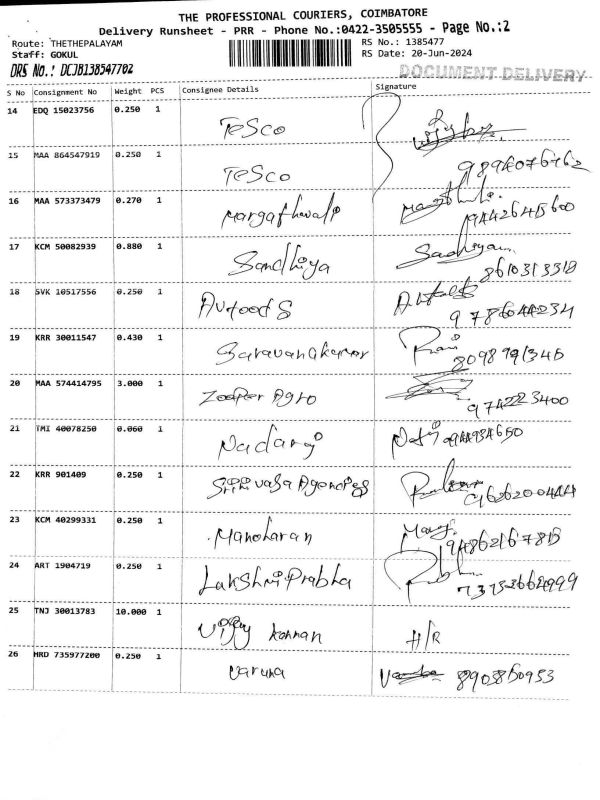 THE PROFESSIONAL COURIERS, COIMBATORE
Delivery Runsheet - PRR - Phone No.:0422-3505555 - Page No.:2
Route: THETHEPALAYAM
RS No.: 1385477
Staff: GOKUL
RS Date: 20-Jun-2024
DRS No.: DCJB138547702
DOCUMENT DELIVERY
S No Consignment No Weight PCS Consignee Details Signature
14 EDQ 15023756 0.250 1 Tesco
15 MAA 864547919 0.250 1 Tesco 9894076462
16 MAA 573373479 0.270 1 Margathavalli 9442645600
17 KCM 50082939 0.880 1 Sandhiya Sadhiyam 8610313518
18 SVK 10517556 0.250 1 Avfoods 9786044234
19 KRR 30011547 0.430 1 Saravanakumar Ravi
20 MAA 574414795 3.000 1 Zooper Agro 974223400
21 TMI 40078250 0.060 1 Nadaraj
22 KRR 901409 0.250 1 Srinivasa Agencies 9626200444
23 KCM 40299331 0.250 1 Manoharan 94862167815
24 ART 1904719 0.250 1 Lakshmi Prabha
25 TNJ 30013783 10.000 1 Vijay Kannan H/R
26 HRD 735977200 0.250 1 Varuna 8903860953